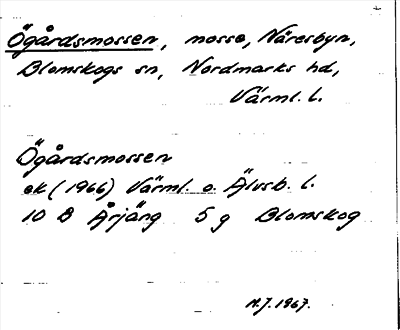 Ögårdsmossen, mosse, Näresbyn,
Blomskogs sn, Nordmarks hd,
Värml. l.
Ögårdsmossen
ek (1966) Värml. o. Älvsb. l.
10 B Årjäng 5 g Blomskog
N.J. 1967.